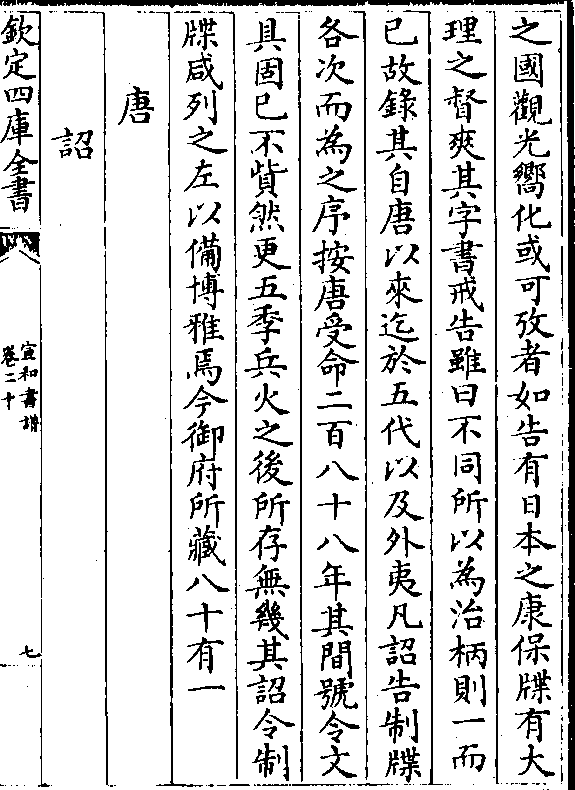 之國觀光嚮化或可攷者如告有日本之康保牒有大
理之督爽其字書戒告雖曰不同所以為治柄則一而
已故錄其自唐以來迄於五代以及外夷凡詔告制牒
各次而為之序按唐受命二百八十八年其間號令文
具固已不貲然更五季兵火之後所存無幾其詔令制
牒咸列之左以備博雅焉今御府所藏八十有一
唐
詔
欽定四庫全書
宣和書譜
卷二十
七